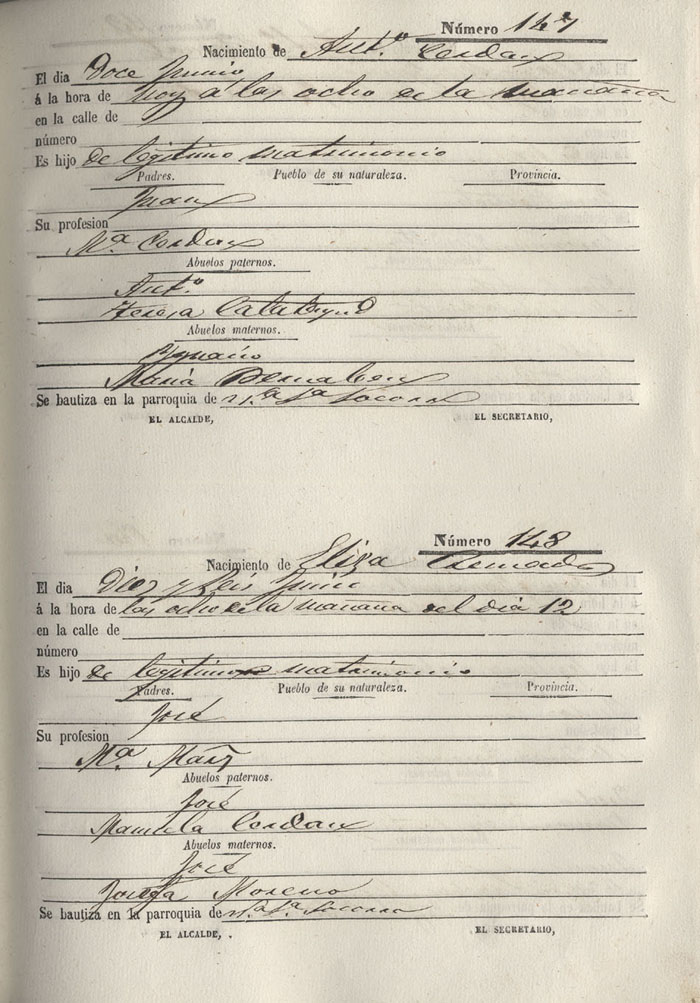 Número 147
Nacimiento de Ant.º Cerdan
El dia Doce Junio
á la hora de hoy a las ocho de la mañana
en la calle de
número
Es hijo de legitimo matrimonio
Padres. Pueblo de su naturaleza. Provincia.
Juan
Su profesion
M.ª Cerdan
Abuelos paternos.
Ant.º
Teresa Calatayud
Abuelos maternos.
Ygnacio
Maria Bernabeu
Se bautiza en la parroquia de N.ª S.ª Socorro
EL ALCALDE, EL SECRETARIO,
Número 148
Nacimiento de Elisa
El dia Diez y Seis Junio
á la hora de las ocho de la mañana del dia 12
en la calle de
número
Es hijo de legitimo matrimonio
Padres. Pueblo de su naturaleza. Provincia.
José
Su profesion
M.ª
Abuelos paternos.
José
Manuela Cerdan
Abuelos maternos.
José
Josefa Moreno
Se bautiza en la parroquia de N.ª S.ª Socorro
EL ALCALDE, EL SECRETARIO,